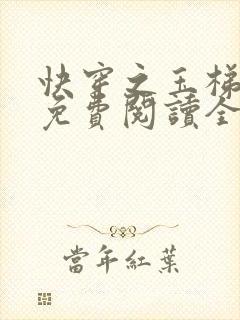 快穿之玉梯
免費閱讀全
當年紅葉